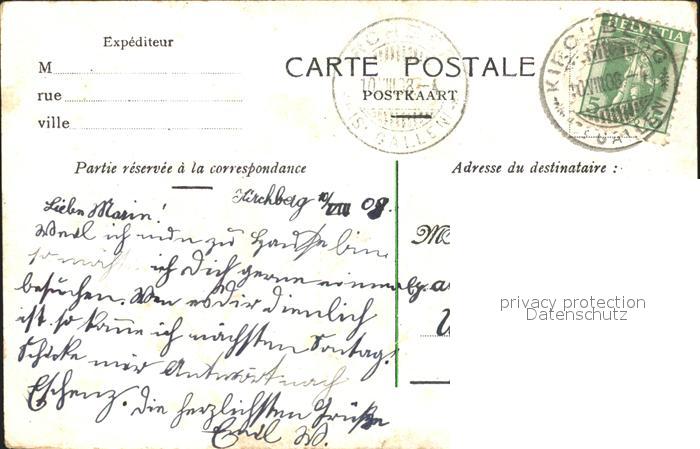 Expéditeur
M
rue
ville
CARTE POSTALE
POSTKAART
KIRCHBERG
10.VIII.08.-4
(ST. GALLEN)
HELVETIA
5
KIRCHBERG
10.VIII.08.-4
(ST. GALLEN)
Partie réservée à la correspondance
Adresse du destinataire :
Kirchberg 10/VIII 08.
Liebe Marie!
Weil ich nun zu Hause bin,
so möcht ich Dich gerne einmal
besuchen. Wen es dir dienlich
ist so kane ich nächsten Sontag.
Schicke mir Antwort nach
Eschenz. Die herzlichsten Grüße
Emil W.
privacy protection
Datenschutz